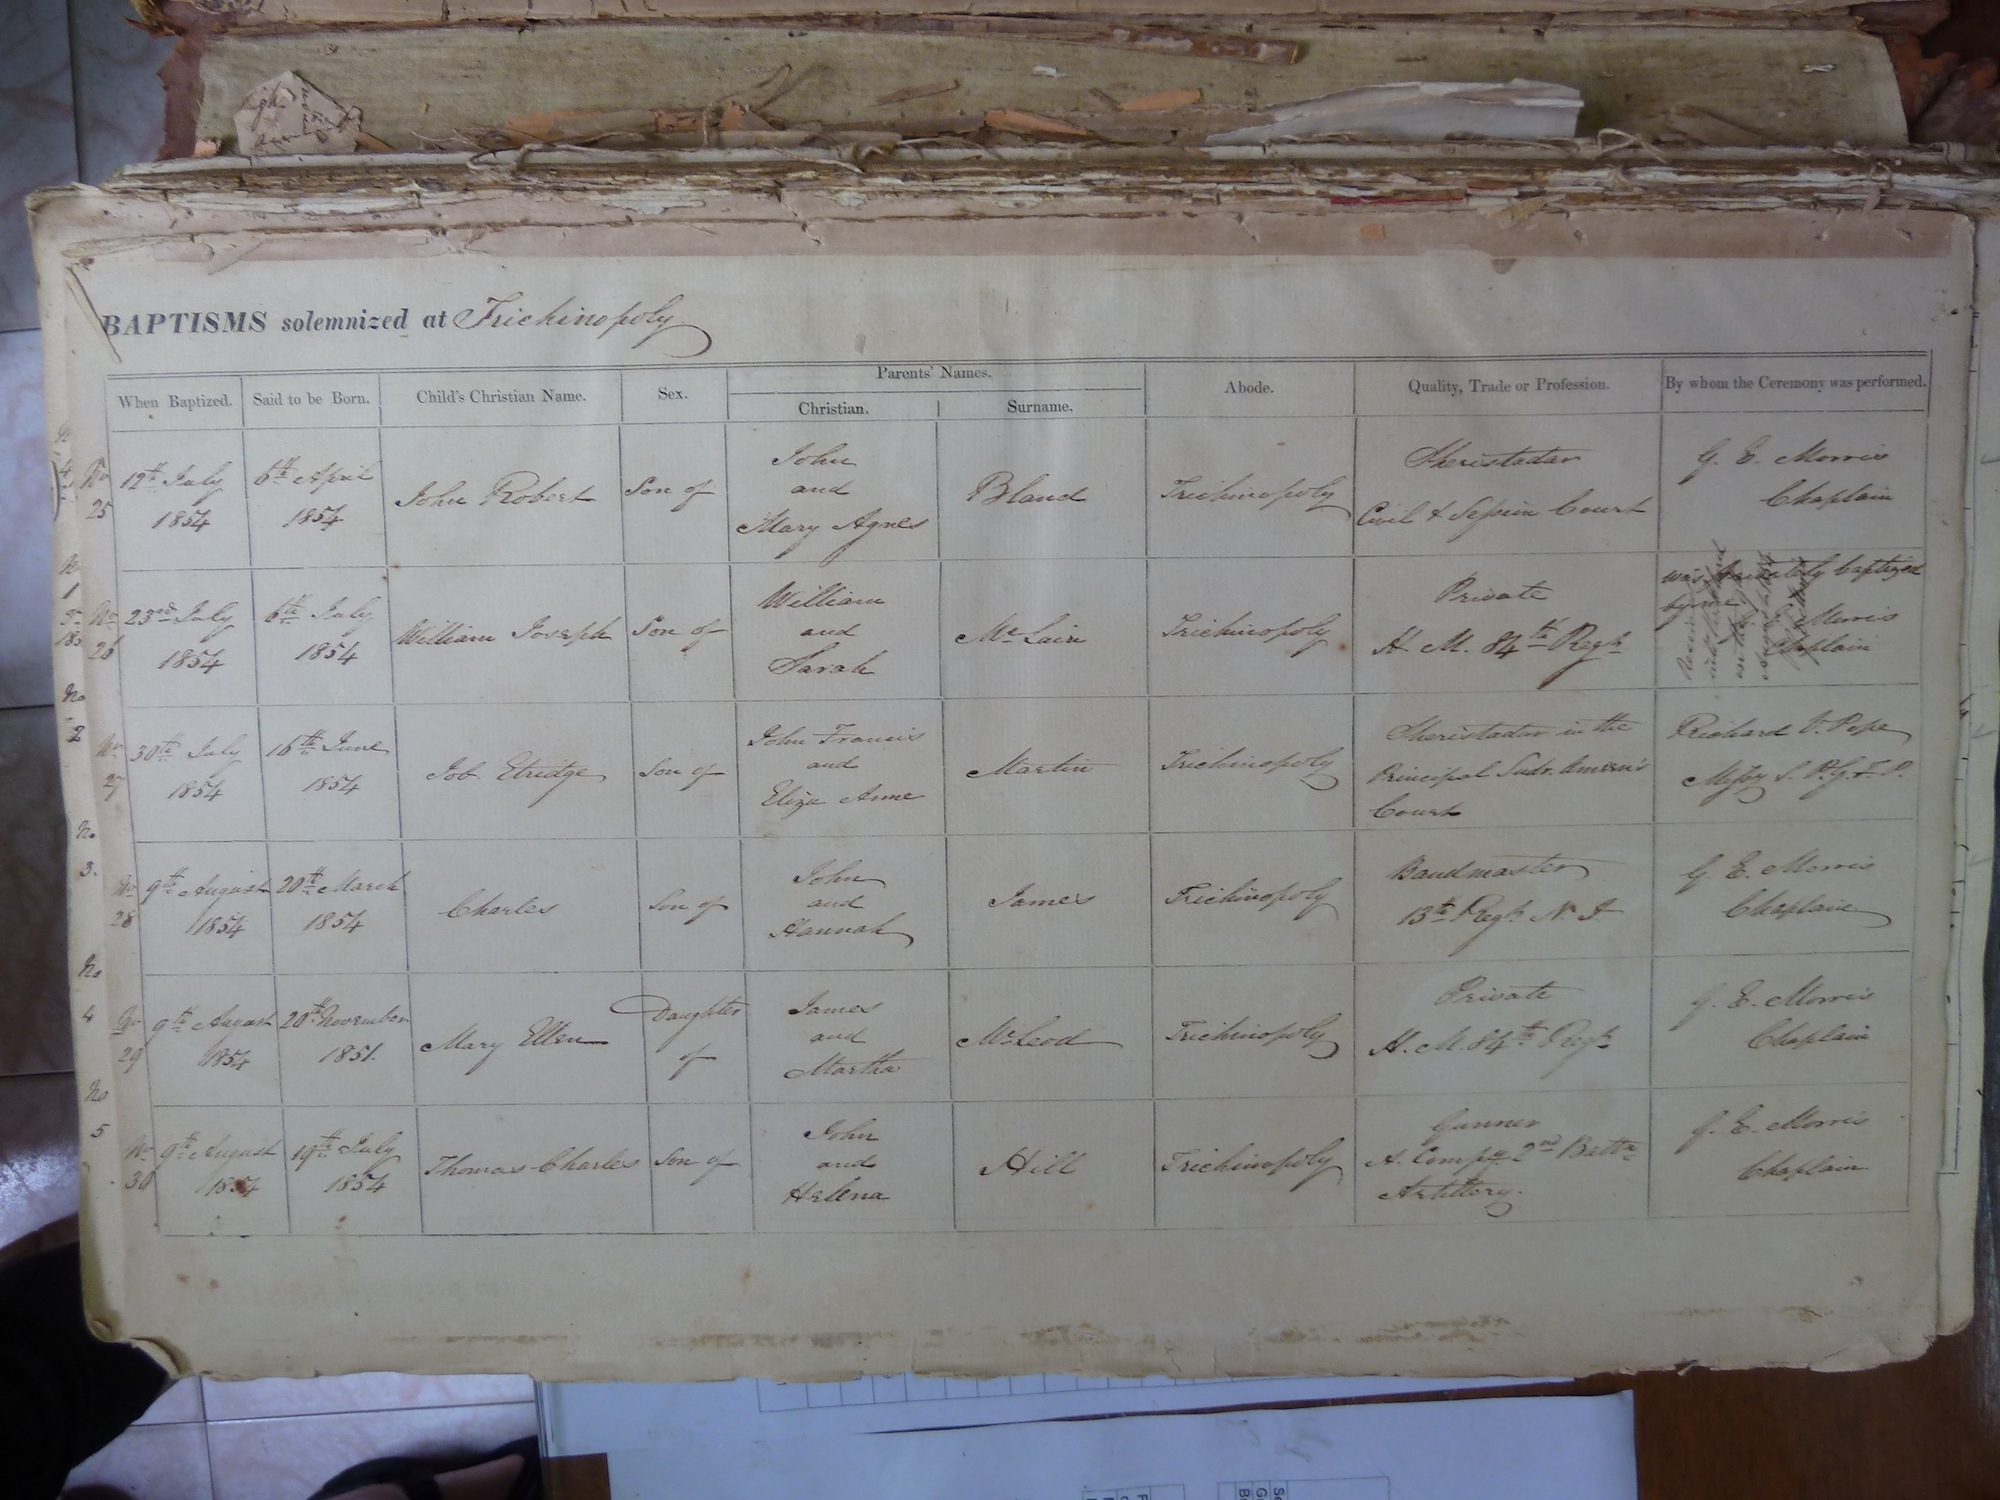 BAPTISMS solemnized at Trichinopoly
When Baptized. Said to be Born. Child's Christian Name. Sex. Parents' Names. Christian. Surname. Abode. Quality, Trade or Profession. By whom the Ceremony was performed.
No 25
12th July 1854
6th April 1854
John Robert
Son of
John and Mary Agnes
Bland
Trichinopoly
Sheristadar
Civil & Session Court
G. E. Morris
Chaplain
No 26
23rd July 1854
6th July 1854
William Joseph
Son of
William and Sarah
Mc Lain
Trichinopoly
Private
H. M. 84th Regt
was privately baptized
by me
Morris
Chaplain
No 27
30th July 1854
16th June 1854
Job Etridge
Son of
John Francis and Eliza Anne
Martin
Trichinopoly
Sheristadar in the
Principal Sudr. Ameen's
Court
Richard V. Pope
S. P. G. F. P.
No 28
9th August 1854
20th March 1854
Charles
Son of
John and Hannah
James
Trichinopoly
Bandmaster
13th Regt N I
G. E. Morris
Chaplain
No 29
9th August 1854
20th November 1851.
Mary Ellen
Daughter of
James and Martha
McLeod
Trichinopoly
Private
H. M. 84th Regt
G. E. Morris
Chaplain
No 30
9th August 1854
19th July 1854
Thomas Charles
Son of
John and Helena
Hill
Trichinopoly
Gunner
A. Compy 2nd Battn
Artillery.
G. E. Morris
Chaplain